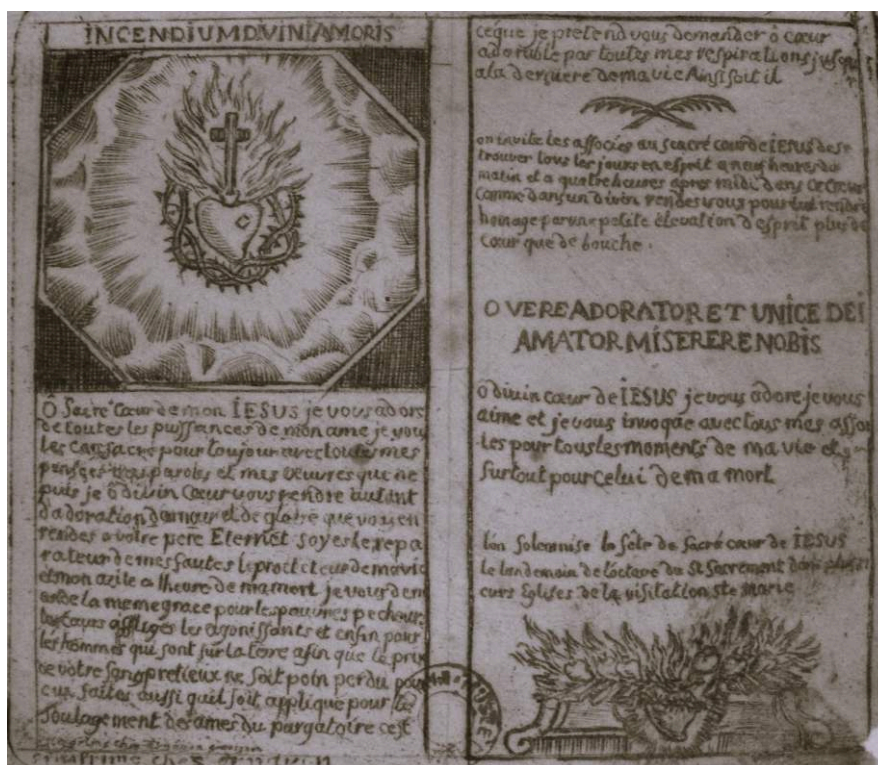 INCENDIUM DIVINI AMORIS
Ô Sacré Cœur de mon IESUS je vous adore
de toutes les puissances de mon ame je vous
les consacre pour toujour avec toutes mes
pensées mes paroles et mes œuvres que ne
puis je ô divin Cœur vous rendre autant
d'adoration d'amour et de gloire que vous en
rendes a votre pere Eternel soyes le repa
rateur de mes fautes le protecteur de ma vie
et mon azile a lheure de ma mort je vous dem
ande la meme grace pour les pauvres pecheurs
les cœurs affligés les agonissants et enfin pour
les hommes qui sont sur la terre afin que le prix
de votre sang pretieux ne soit poin perdu pour
eux faites aussi quil soit appliqué pour le
soulagement des ames du purgatoire cest
ceque je pretend vous demander ô cœur
adorable par toutes mes respirations jusqu
a la derniere de ma vie Ainsi soit il
on invite les associés au sacré cœur de IESUS de se
trouver tous les jours en esprit a neuf heures du
matin et a quatre heures apres midi dans ce Cœur
comme dans un divin rendes vous pour lui rendre
homage par une petite élevation d'esprit plus de
Cœur que de bouche.
O VERE ADORATOR ET UNICE DEI
AMATOR MISERERE NOBIS
ô divin cœur de IESUS je vous adore je vous
aime et je vous invoque avec tous mes asso
iés pour tous les moments de ma vie et
surtout pour celui de ma mort
lon solemnise la fête du Sacré cœur de IESUS
le landemain de l'octave du St Sacrement dans plusi
eurs Eglises de la visitation ste Marie